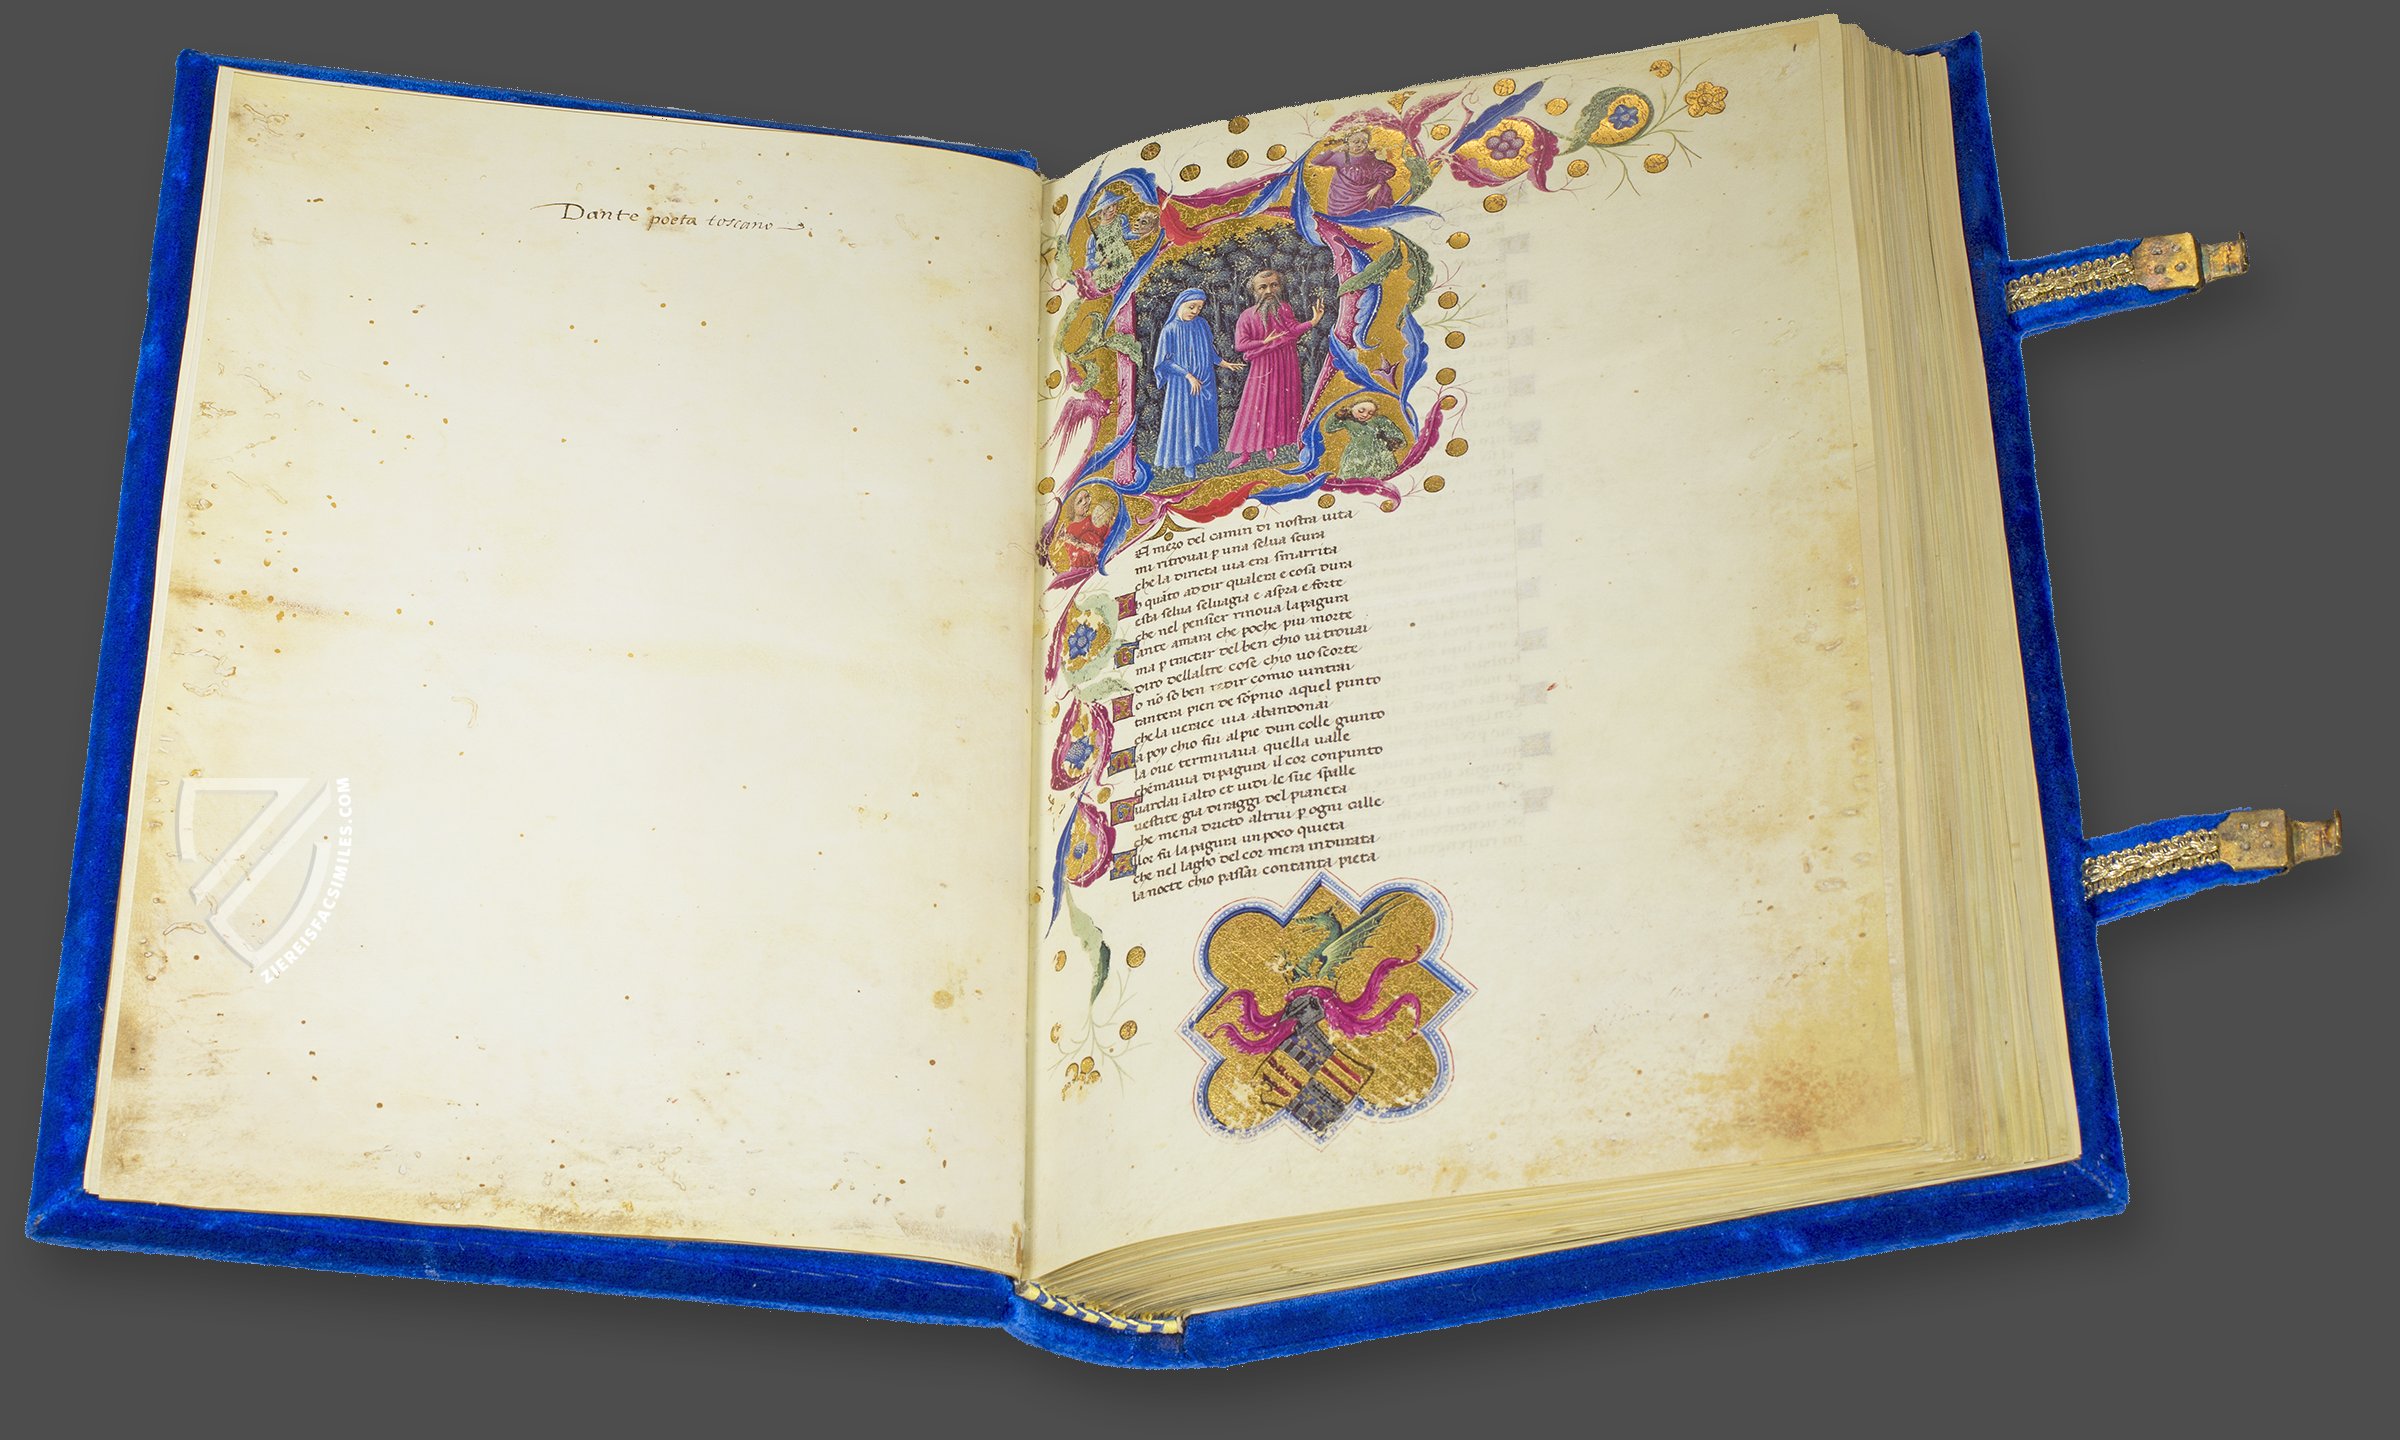 Dante poeta toscano
El mezo del camin di nostra uita
mi ritrouai p una selua scura
che la diricta uia era smarrita
h quāto ad dir qualera e cosa dura
esta selua seluagia e aspra e forte
che nel pensier rinoua la pagura
Tante amara che poche piu morte
ma p tractar del ben chio ui trouai
diro dellaltre cose chio uo scorte
Io nō so ben redir comio uintrai
tantera pien de sōpnio aquel punto
che la uerace uia abandonai
Ma poy chio fui alpie dun colle giunto
la oue terminaua quella ualle
che mauia di pagura il cor conpunto
Guardai ī alto et uidi le sue spalle
uestite gia di raggi del pianeta
che mena dricto altrui p ogni calle
Allor fu la pagura un poco quieta
che nel lagho del cor mera indurata
la nocte chio passai contanta pieta
ZIEREISFACSIMILES.COM